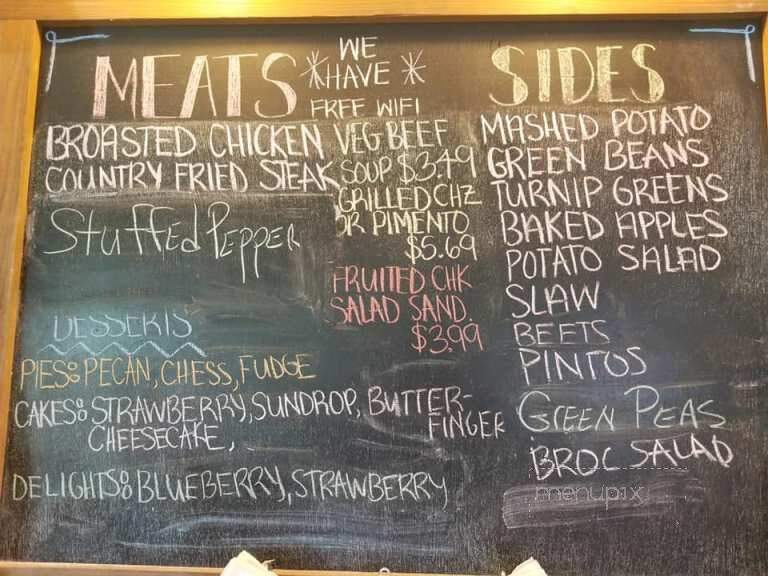 MEATS
BROASTED CHICKEN
COUNTRY FRIED STEAK
Stuffed Pepper
WE
*HAVE*
FREE WIFI
VEG BEEF
SOUP $3.49
GRILLED CHZ
OR PIMENTO
$5.69
FRUITED CHK
SALAD SAND.
$3.99
SIDES
MASHED POTATO
GREEN BEANS
TURNIP GREENS
BAKED APPLES
POTATO SALAD
SLAW
BEETS
PINTOS
GREEN PEAS
BROC SALAD
DESSERTS
PIES: PECAN, CHESS, FUDGE
CAKES: STRAWBERRY, SUNDROP, BUTTER-
FINGER
CHEESECAKE,
DELIGHTS: BLUEBERRY, STRAWBERRY
menupix